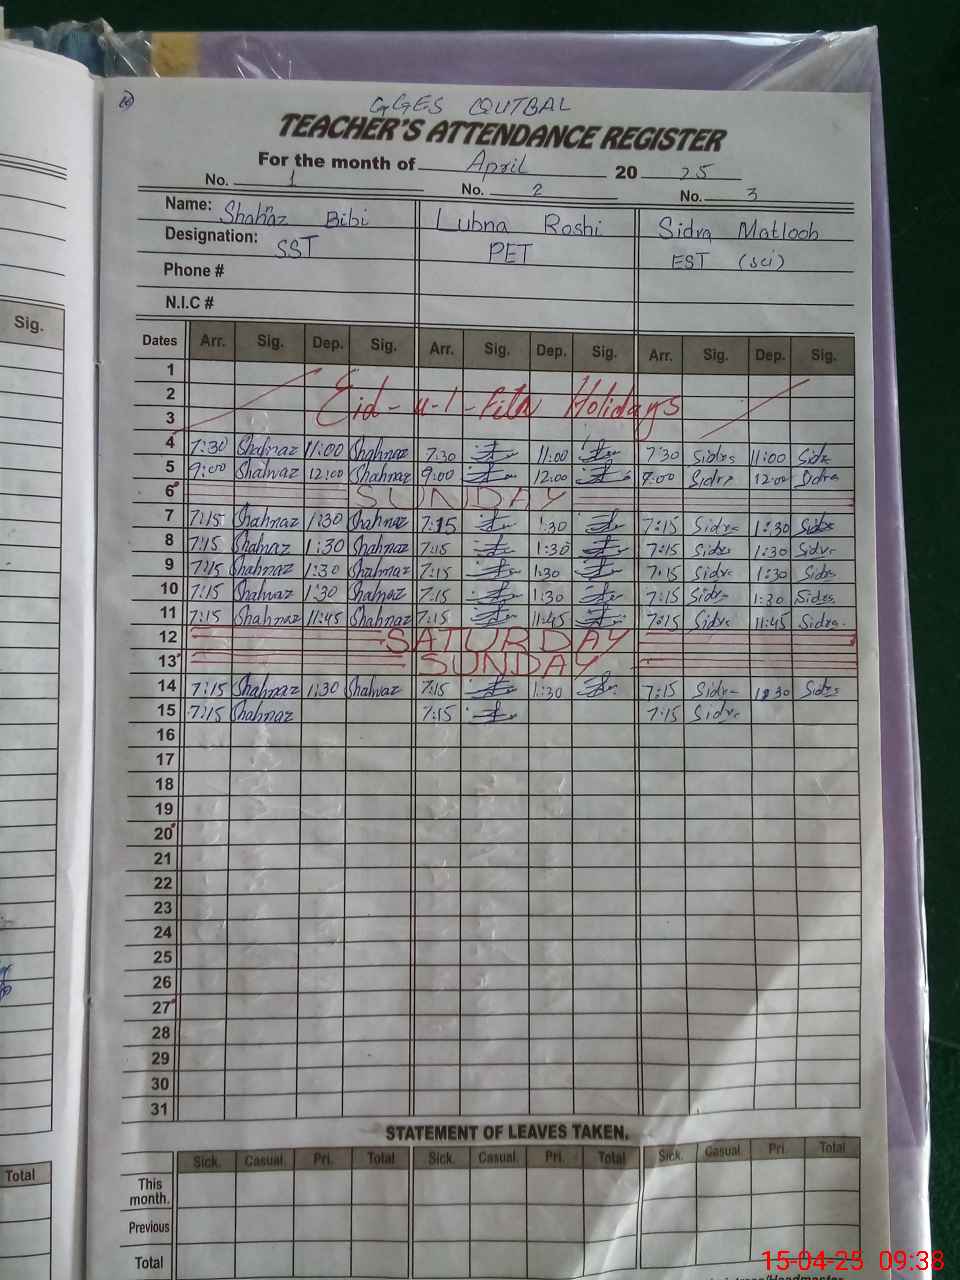 GGES QUTBAL
TEACHER'S ATTENDANCE REGISTER
For the month of April 2025
No. 1 No. 2 No. 3
Name: Shahnaz Bibi Lubna Roshi Sidra Matloob
Designation: SST PET EST (sci)
Phone #
N.I.C #
Sig.
Dates Arr. Sig. Dep. Sig. Arr. Sig. Dep. Sig. Arr. Sig. Dep. Sig.
1
2 Eid-u-l-Fitr Holidays
3
4 7:30 Shahnaz 11:00 Shahnaz 7:30 11:00 7:30 Sidra 11:00 Sidra
5 9:00 Shahnaz 12:00 Shahnaz 9:00 12:00 9:00 Sidra 12:00 Sidra
6 SUNDAY
7 7:15 Shahnaz 1:30 Shahnaz 7:15 1:30 7:15 Sidra 1:30 Sidra
8 7:15 Shahnaz 1:30 Shahnaz 7:15 1:30 7:15 Sidra 1:30 Sidra
9 7:15 Shahnaz 1:30 Shahnaz 7:15 1:30 7:15 Sidra 1:30 Sidra
10 7:15 Shahnaz 1:30 Shahnaz 7:15 1:30 7:15 Sidra 1:30 Sidra
11 7:15 Shahnaz 11:45 Shahnaz 7:15 11:45 7:15 Sidra 11:45 Sidra
12 SATURDAY
13 SUNDAY
14 7:15 Shahnaz 1:30 Shahnaz 7:15 1:30 7:15 Sidra 1:30 Sidra
15 7:15 Shahnaz 7:15 7:15 Sidra
16
17
18
19
20
21
22
23
24
25
26
27
28
29
30
31
STATEMENT OF LEAVES TAKEN.
Sick. Casual. Pri. Total Sick. Casual. Pri. Total Sick. Casual. Pri. Total
Total
This month.
Previous
Total
15-04-25 09:38